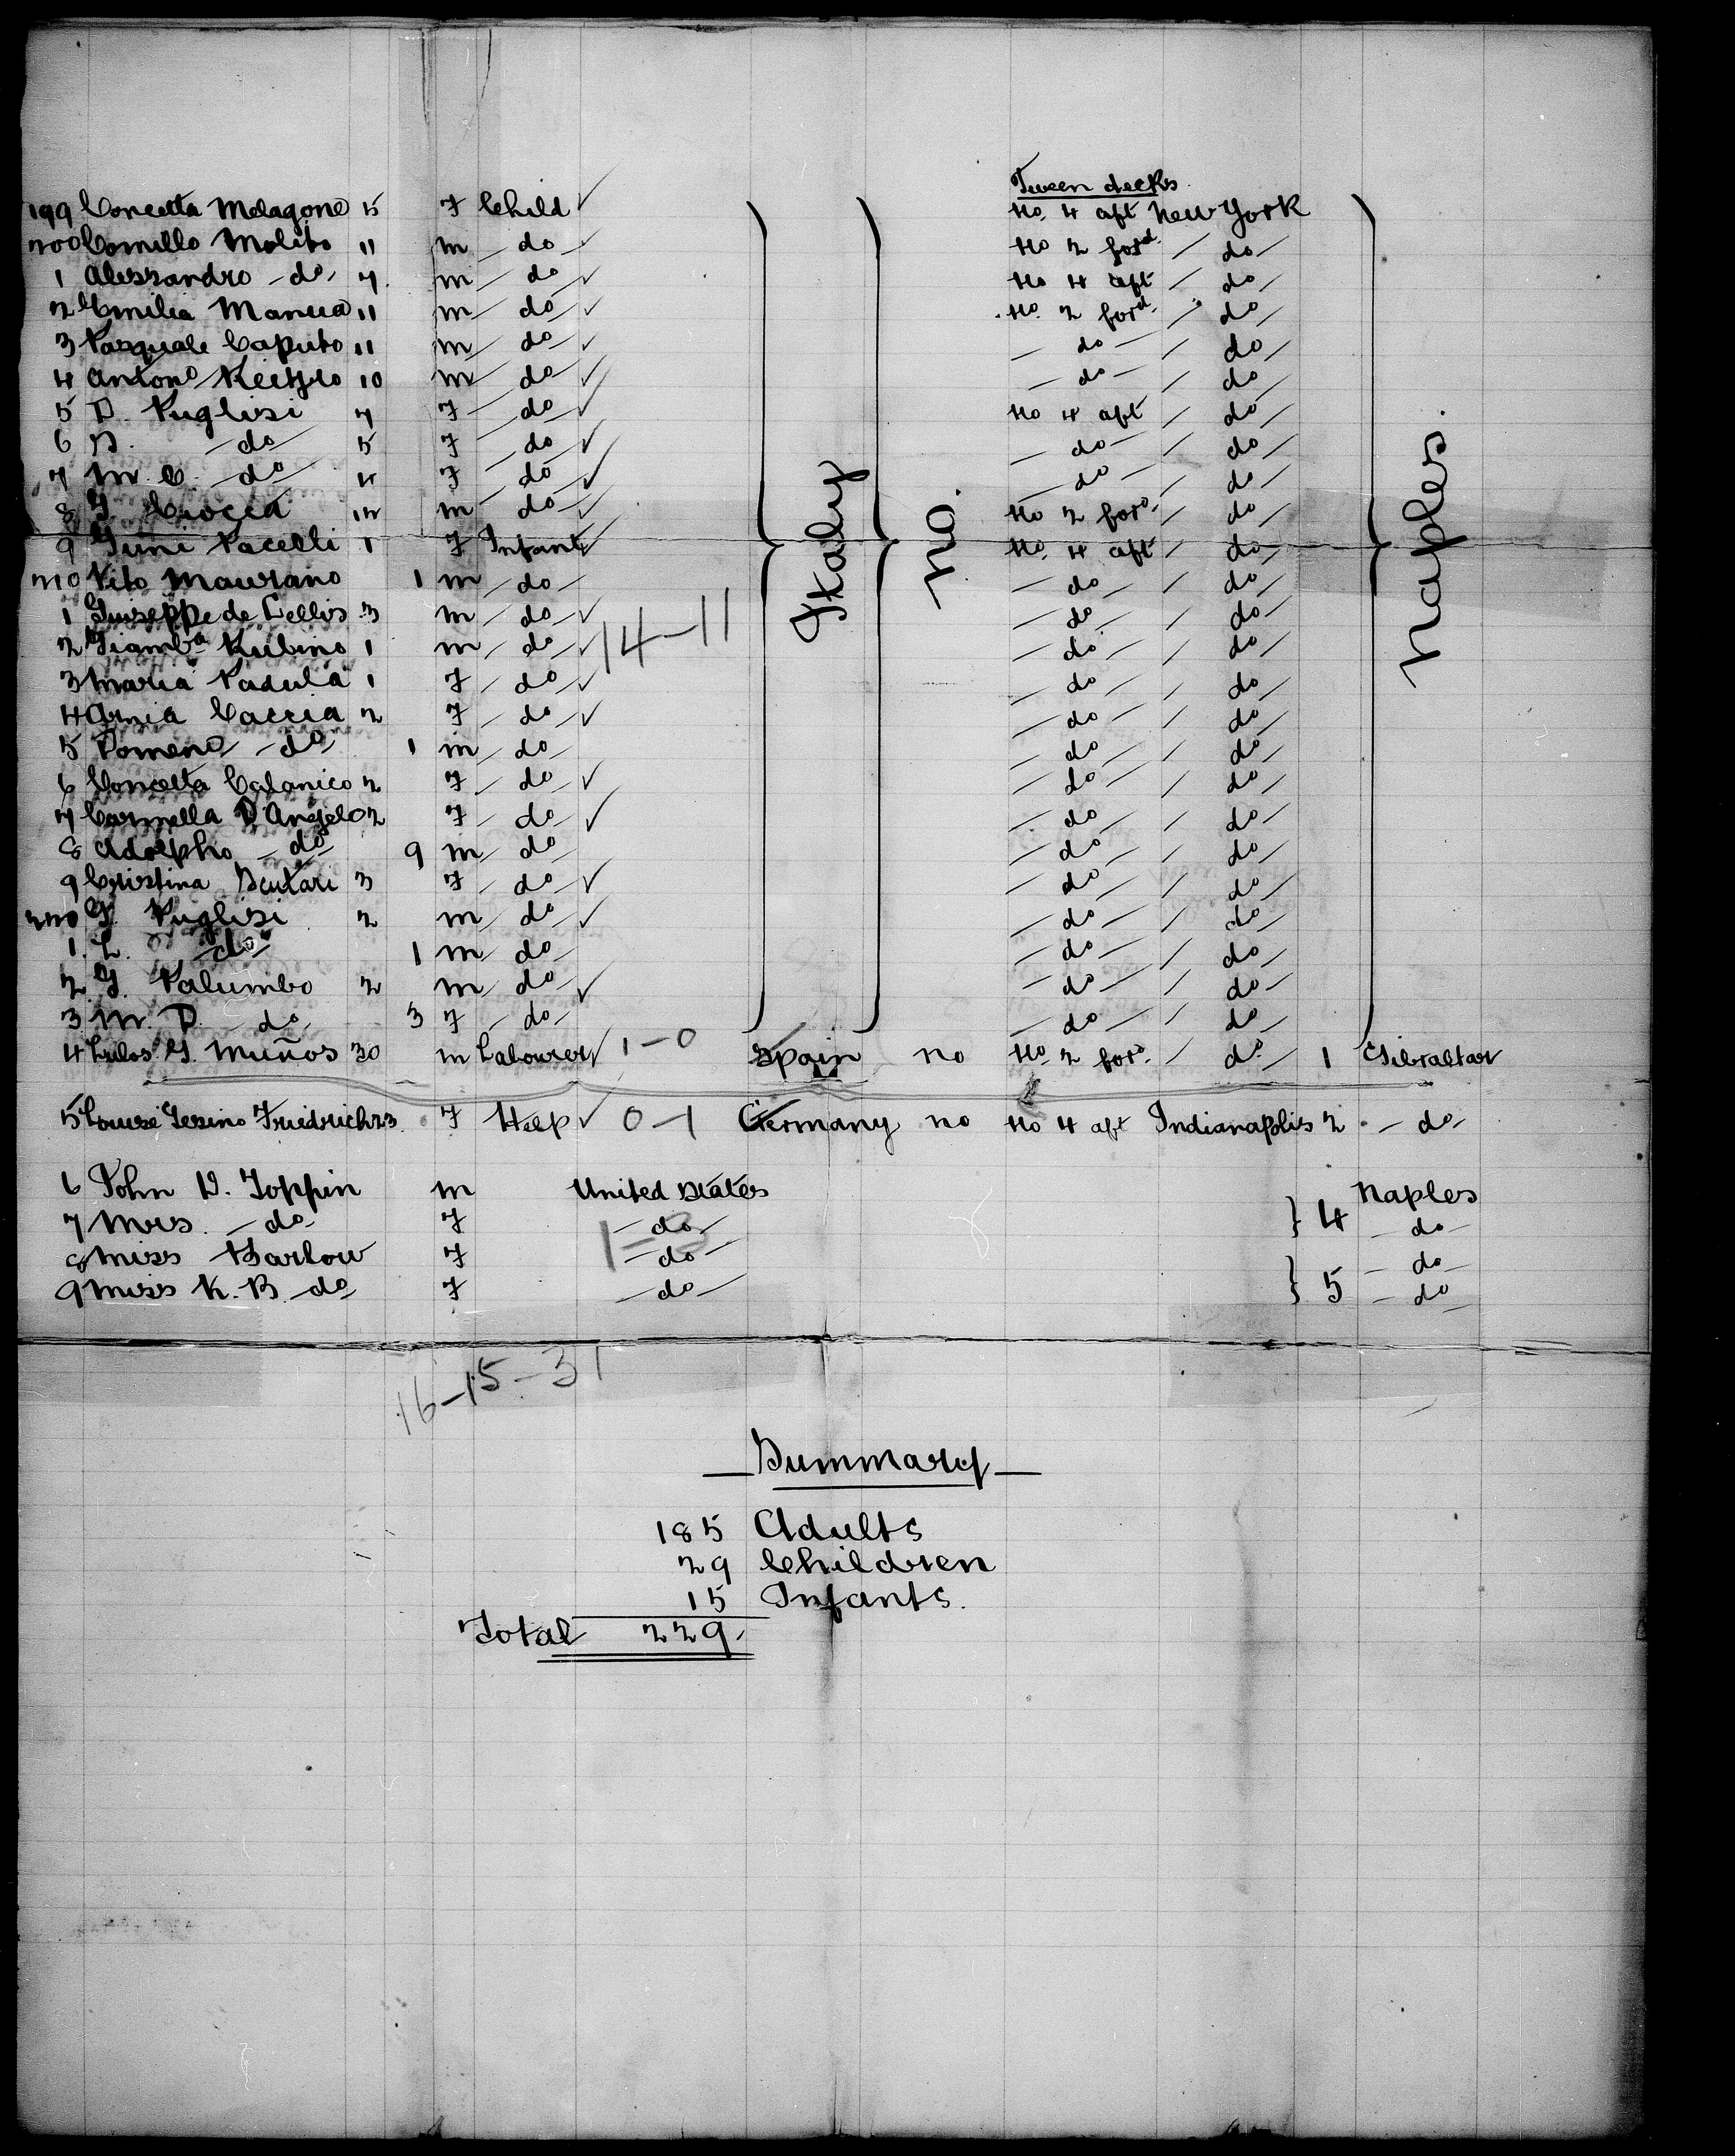 Tween decks
199 Concetta Melagone 5 F Child ✓ No. 4 aft New York
200 Comillo Molito 11 m do ✓ No 2 ford do
1 Alessandro do 7 m do ✓ No 4 aft do
2 Emilia Manua 11 m do ✓ No. 2 ford do
3 Pasquale Caputo 11 m do ✓ do do
4 Antono 10 m do ✓ do do
5 D. Puglisi 7 F do ✓ No 4 aft do
6 S. do 5 F do ✓ do do
7 M. C. do F do ✓ do do
8 G. m do ✓ No 2 ford do
9 Pacelli 1 F Infant ✓ No. 4 aft do
210 Vito Maurano 1 m do do do
1 Guiseppe de Lellis 3 m do ✓ do do
2 Giamba Rubino 1 m do ✓ 14-11 do do
3 Maria Padula 1 F do ✓ do do
4 Caccia 2 F do ✓ do do
5 do 1 m do do do
6 Concetta Calanico 2 F do ✓ do do
7 Carmella D'Angelo 2 F do ✓ do do
8 Adolpho do 9 m do do do
9 Cristina Scutari 3 F do ✓ do do
220 G. Puglisi 2 m do ✓ do do
1. L. do 1 m do do do
2 G. Palumbo 2 m do ✓ do do
3 M. D. do 3 F do do do
Italy
no.
Naples.
4 G. Muños 30 m Labourer ✓ 1-0 Spain no No 2 ford do 1 Gibraltar
5 Louise Friedrich 23 F Help ✓ 0-1 Germany no No 4 aft Indianapolis 2 do
6 John D. Toppin m United States } 4 Naples
7 Mrs. do F do do
1-3
8 Miss Barlow F do } 5 do
9 Miss K. B. do F do do
16-15-31
Summary
185 Adults
29 Children
15 Infants.
Total 229.